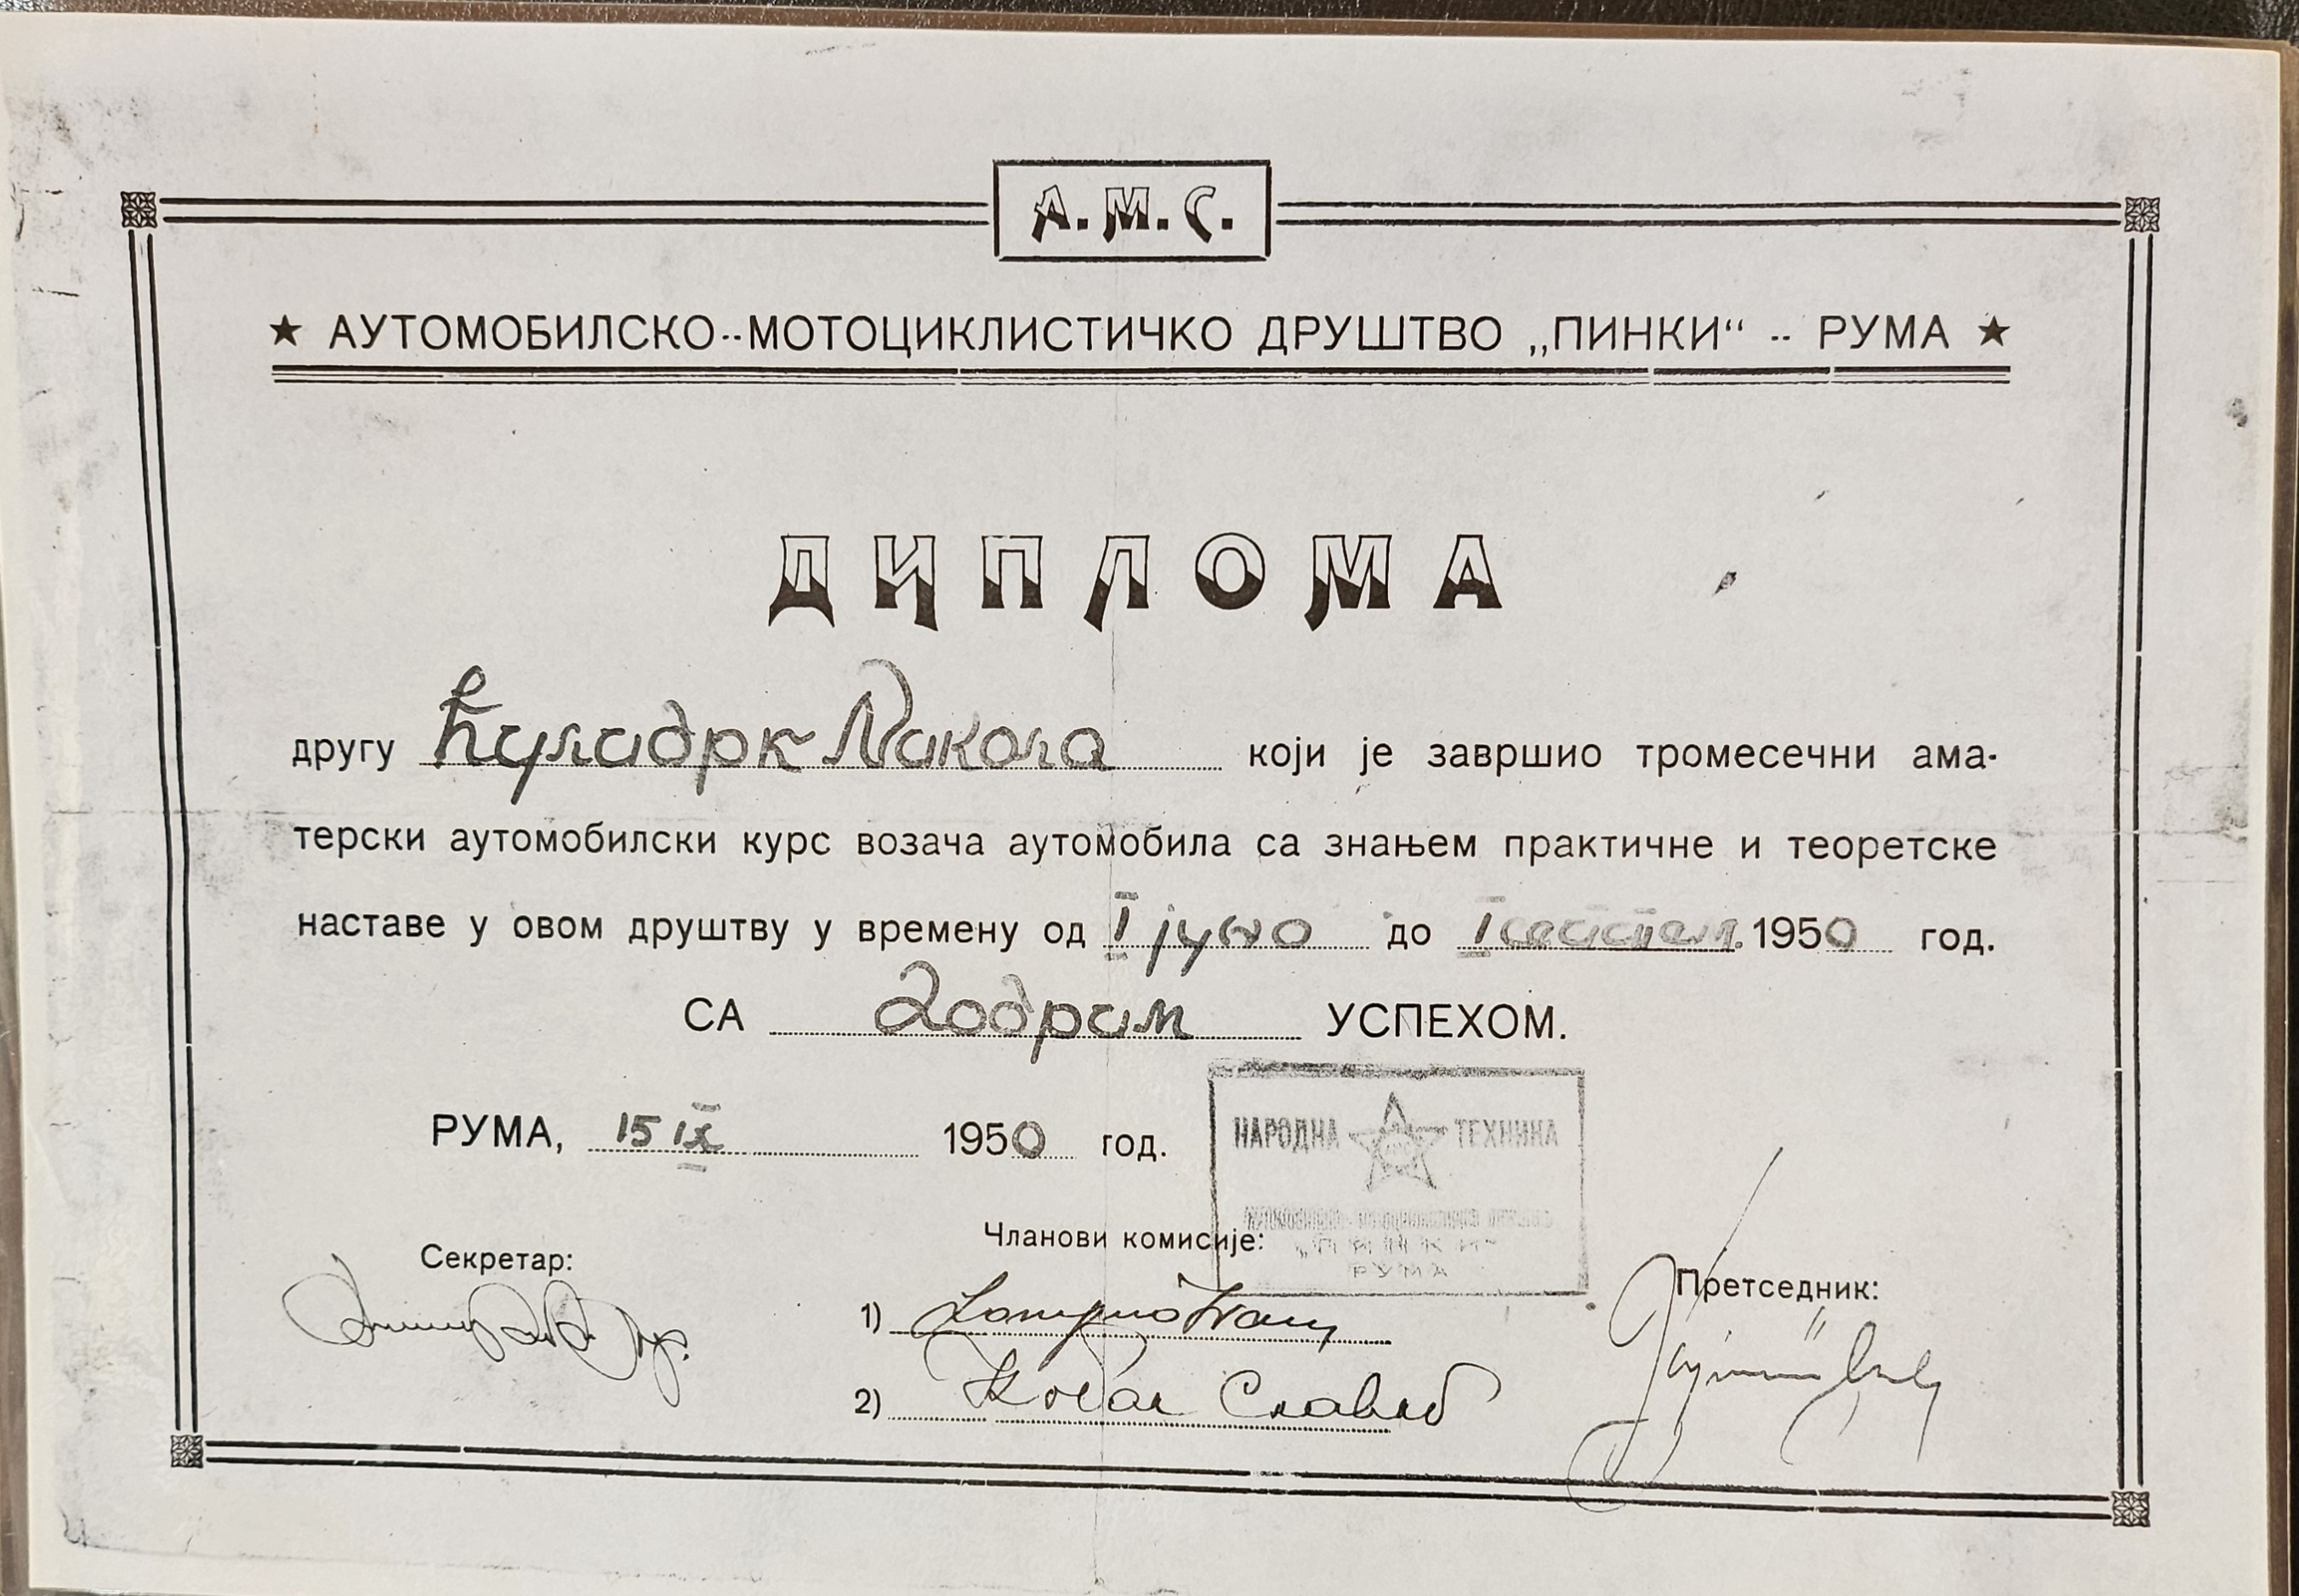 А.М.С.
★ АУТОМОБИЛСКО-МОТОЦИКЛИСТИЧКО ДРУШТВО „ПИНКИ“ - РУМА ★
ДИПЛОМА
другу Ћулибрк Никола који је завршио тромесечни ама-
терски аутомобилски курс возача аутомобила са знањем практичне и теоретске
наставе у овом друштву у времену од I јуно до I септем. 1950 год.
СА добрим УСПЕХОМ.
РУМА, 15 IX 1950 год.
НАРОДНА ТЕХНИКА
„ПИНКИ“
РУМА
Секретар:
Чланови комисије:
Претседник:
1)
2) Ковач